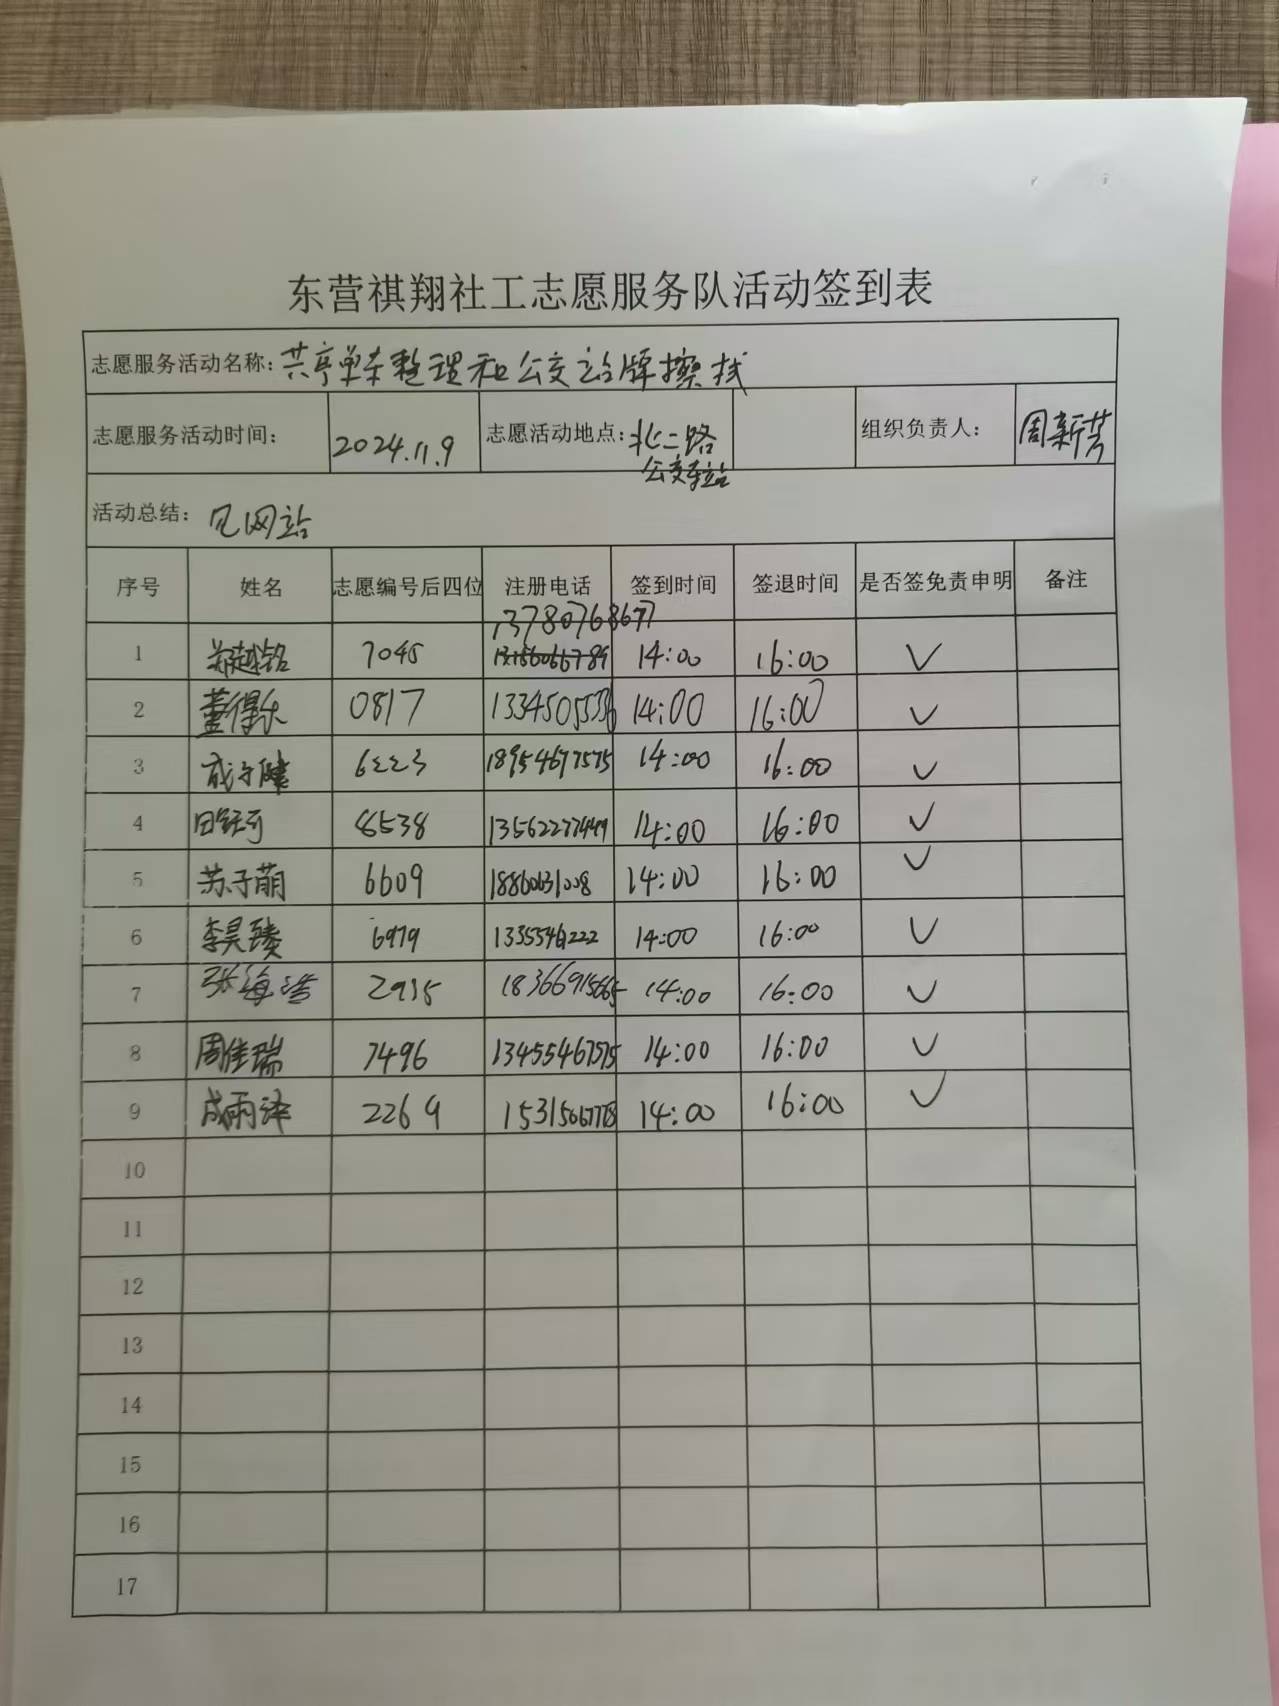 东营祺翔社工志愿服务队活动签到表
志愿服务活动名称: 共享单车整理和公交站牌擦拭
志愿服务活动时间: 2024.11.9 志愿活动地点: 北二路 公交车站 组织负责人: 周新芳
活动总结: 见网站
序号 姓名 志愿编号后四位 注册电话 签到时间 签退时间 是否签免责申明 备注
13780768677
1 郑越铭 7045 14:00 16:00 ✓
2 董得乐 0817 13345055336 14:00 16:00 ✓
3 成子健 6223 18954677575 14:00 16:00 ✓
4 8538 13562277449 14:00 16:00 ✓
5 苏子萌 6609 18860631008 14:00 16:00 ✓
6 李昊臻 6979 14:00 16:00 ✓
7 张海浩 2935 18366915665 14:00 16:00 ✓
8 周佳瑞 7496 13455467575 14:00 16:00 ✓
9 成雨泽 2269 14:00 16:00 ✓
10
11
12
13
14
15
16
17